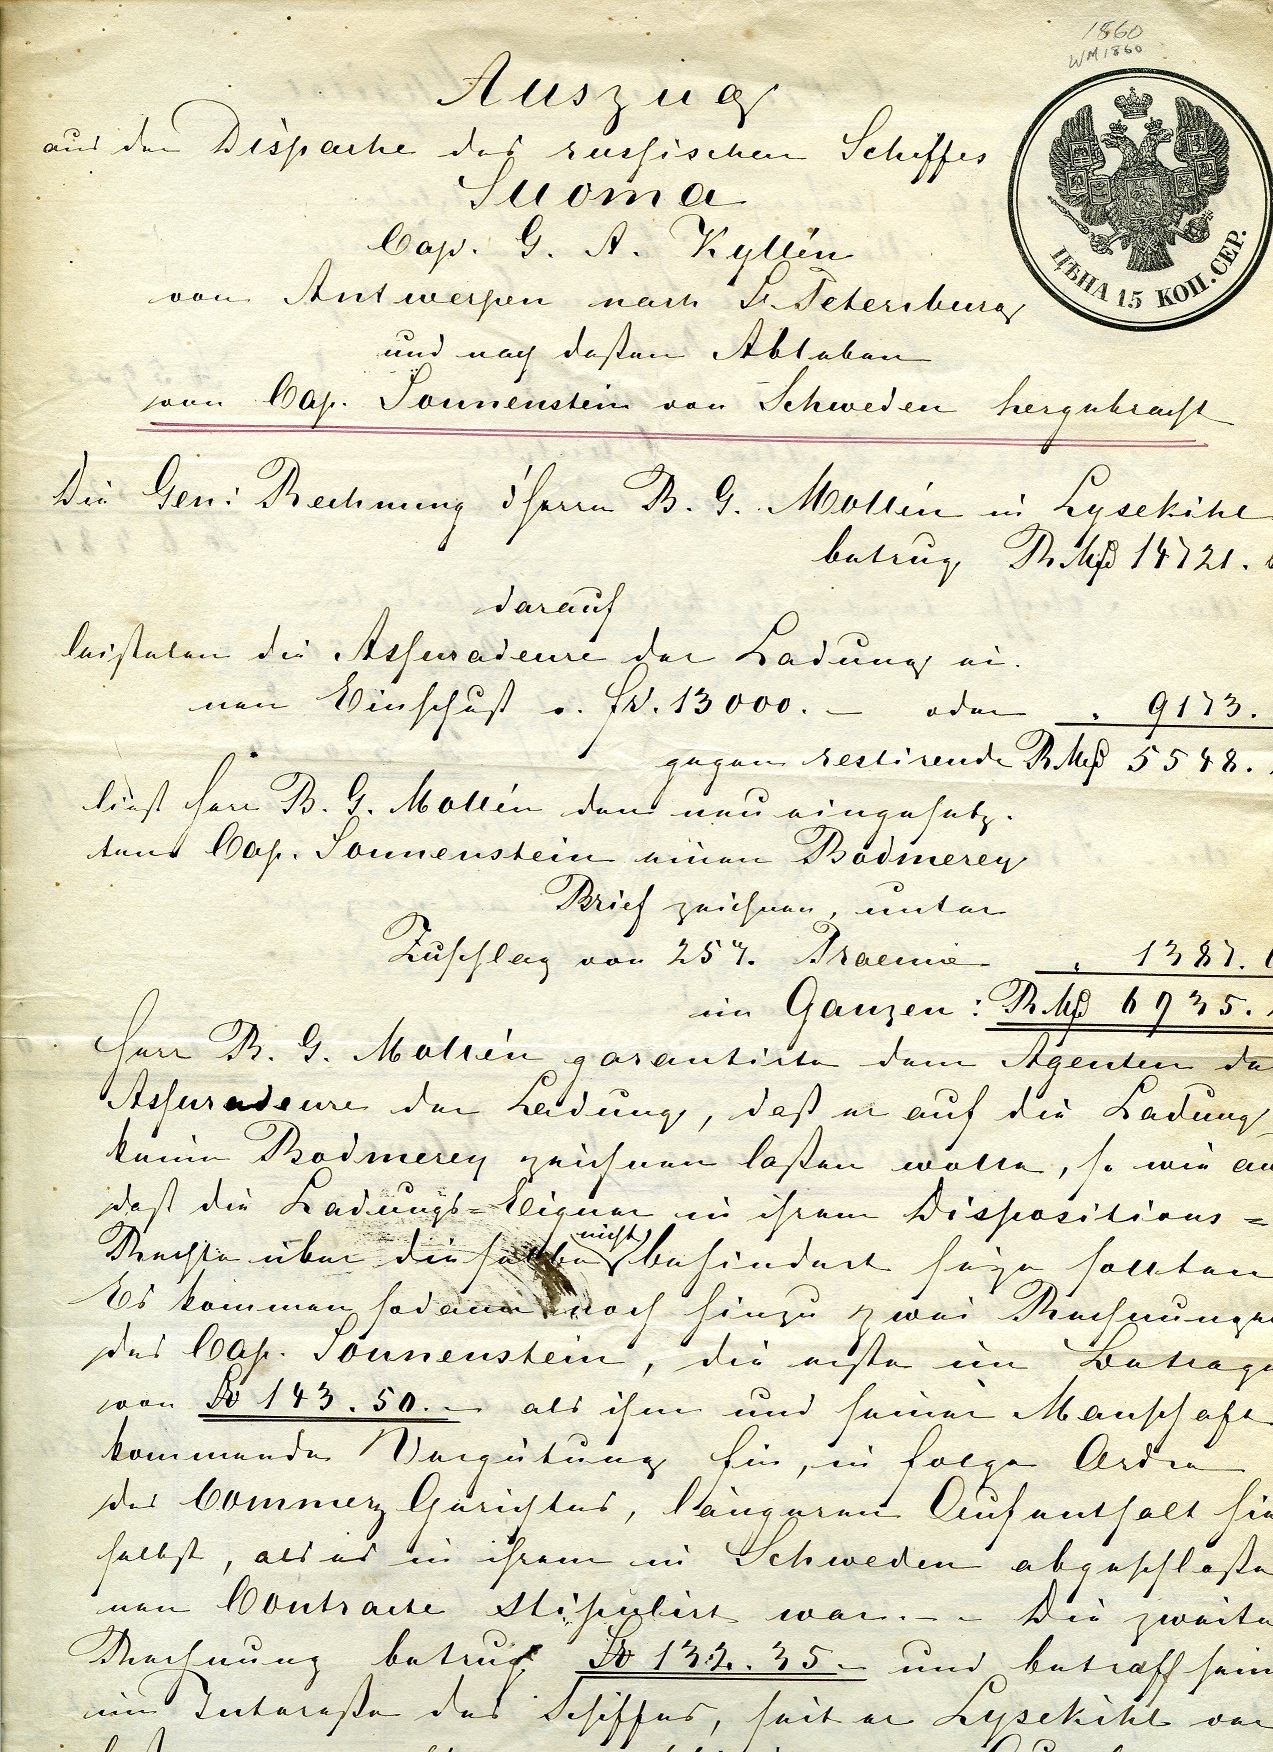 1860
WM 1860
ЦѢНА 15 КОП. СЕР.
Auszug
aus der Dispache des russischen Schiffes
Suoma
Cap. G. A. Kyllén
von Antwerpen nach St. Petersburg
und nach deßen Ableben
von Cap. Sonnenstein von Schweden hergebracht
Die Gen: Rechnung d Herrn B. G. Mollén in Lysekihl
betrug RMß 14721.
darauf
leisteten die Assuradeure der Ladung ei-
nen Einschuß v. frs. 13000. — oder " 9173.
gegen restirende RMß 5548.
ließ Herr B. G. Mollén den neu eingesetz-
ten Cap. Sonnenstein einen Bodmerey
Brief zeichnen, unter
Zuschlag von 25% Praemie " 1387.
im Ganzen: RMß 6935.
Herr B. G. Mollén garantirte dem Agenten de
Assuradeure der Ladung, daß er auf die Ladung
keine Bodmerey zeichnen laßen wolle, so wie au
daß die Ladungs=Eigner in ihrem Dispositions=
Rechte über dieselbe nicht behindert seyn sollten
Es kommen sodann noch hinzu zwei Rechnungen
des Cap. Sonnenstein, die erste im Betrage
von 143.50.— als ihm und seiner Manschaft
kommende Vergütung für, in folge Ordre
des Commerz Gerichtes, längeren Aufenthalt hie
selbst, als es in ihrem in Schweden abgeschloße
nen Contracte stipulirt war. — Die zweite
Rechnung betrug 132.35.— und betraff sein
im Intereße des Schiffes, seit er Lysekihl ver